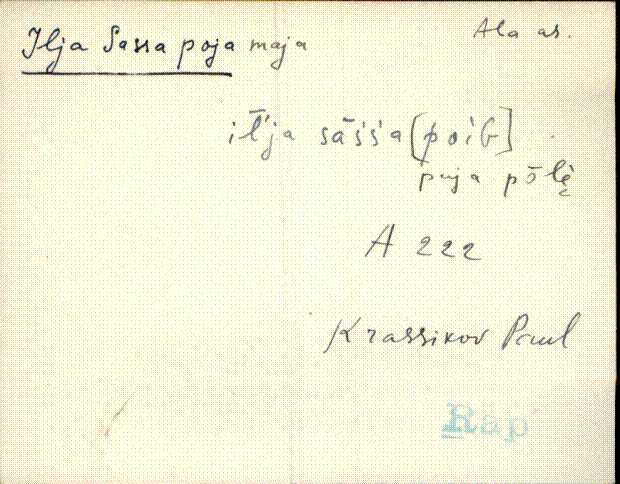 Ilja Sassa poja maja
Ala as.
il̄'ja sās's'a [poib]
puja pōlę
A 222
Krassikov Paul
Räp